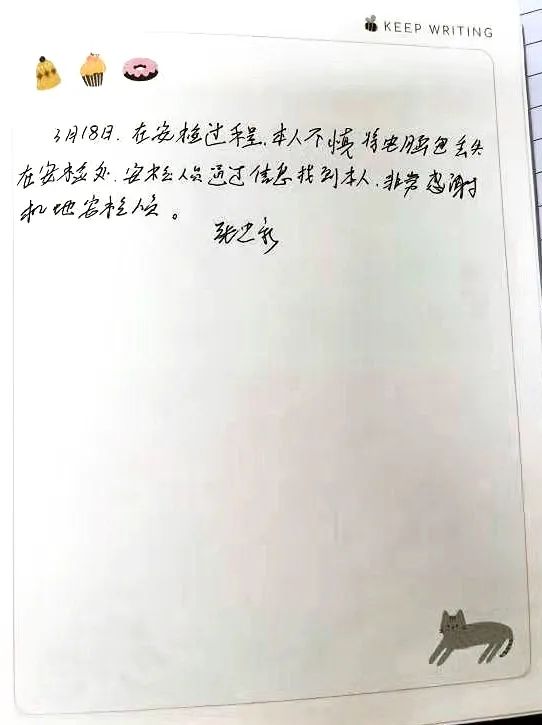 KEEP WRITING
3月18日.在安检过程.本人不慎将电脑包丢失
在安检处.安检人员通过信息找到本人.非常感谢
机地安检人员。